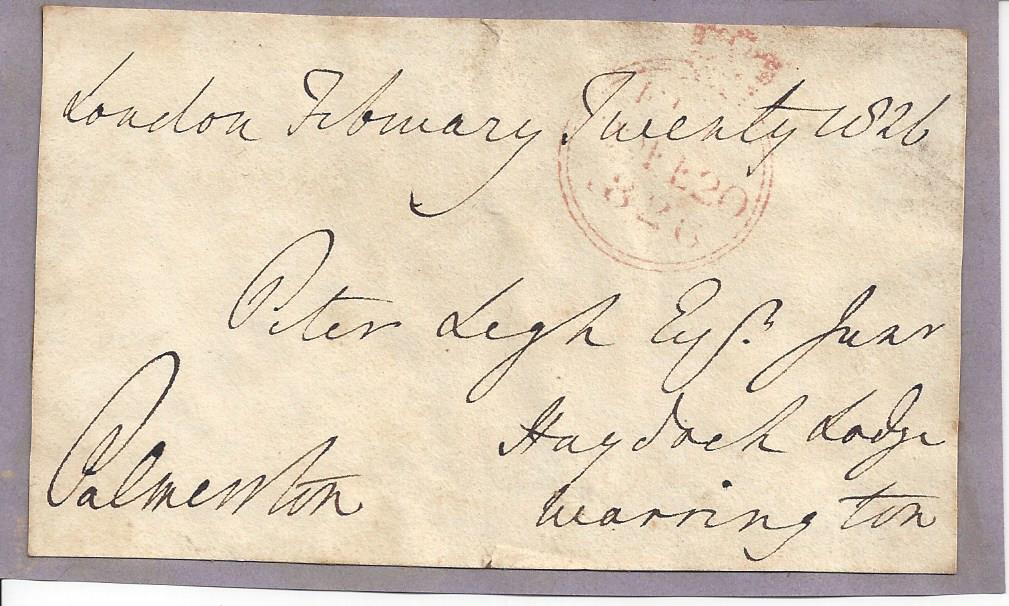 London February Twenty 1826
FREE
FE20
1826
Peter Legh Esqr. Junr
Haydock Lodge
Palmerston
Warrington